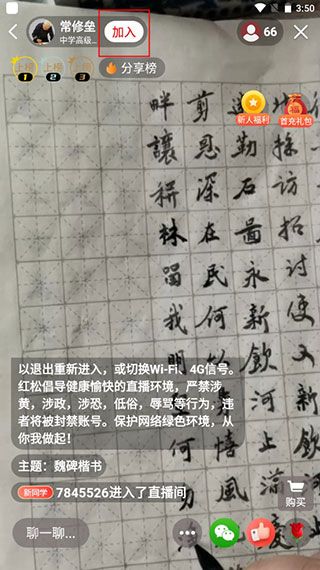 3:50
常修垒
中学高级...
加入
66
上榜 1
上榜 2
3
分享榜
新人福利
首充礼包
訪招討使又新
勤石圖永新飲河止滿
剪恩深在民何
畔讓耕林留我明
以退出重新进入，或切换Wi-Fi、4G信号。
红松倡导健康愉快的直播环境，严禁涉
黄，涉政，涉恐，低俗，辱骂等行为，违
者将被封禁账号。保护网络绿色环境，从
你我做起！
主题：魏碑楷书
新同学 7845526进入了直播间
购买
聊一聊...